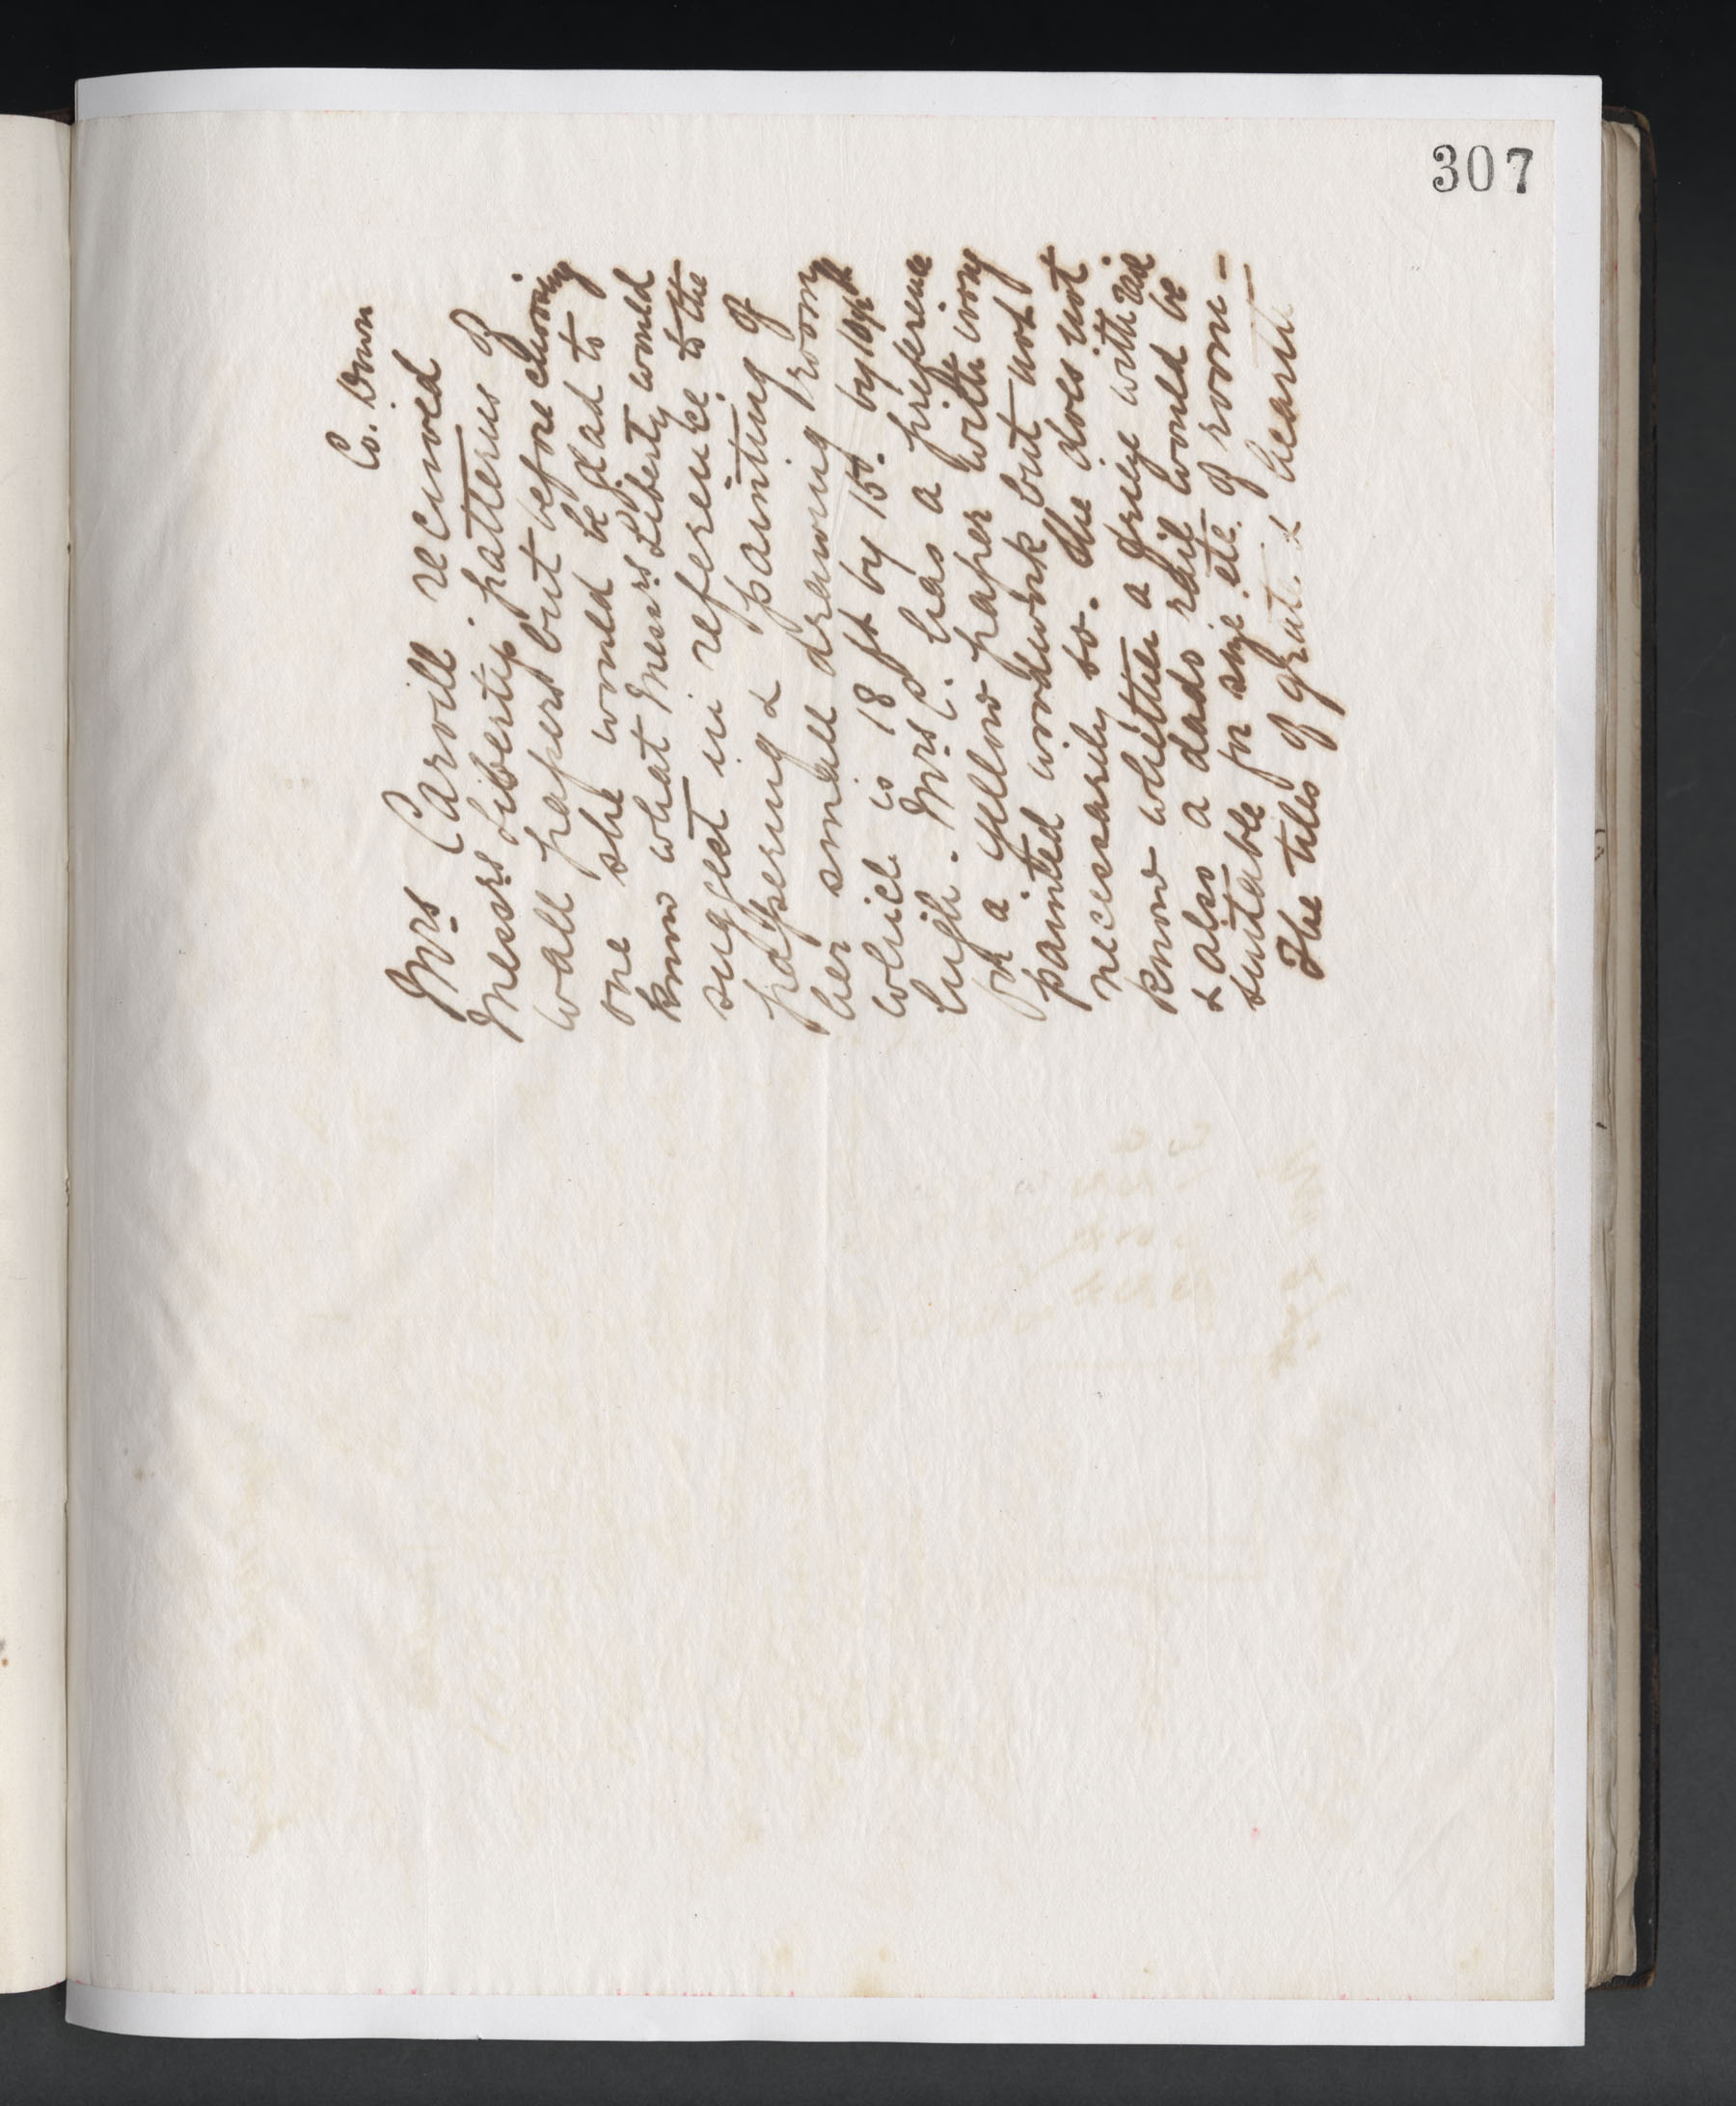 307
Co. Down
Mrs Carvill received
Messrs Libertys patterns of
wall papers but before choosing
one she would be glad to
know what Messrs Liberty would
suggest in reference to the
papering & painting of
her small drawing room
which is 18 ft by 15. by 10½ ft
high. Mrs C. has a preference
for a yellow paper with ivory
painted woodwork but not
necessarily so. She does not
know whether a frieze with rail
& also a dado rail would be
suitable for size etc. of room –
The tiles of grate & hearth